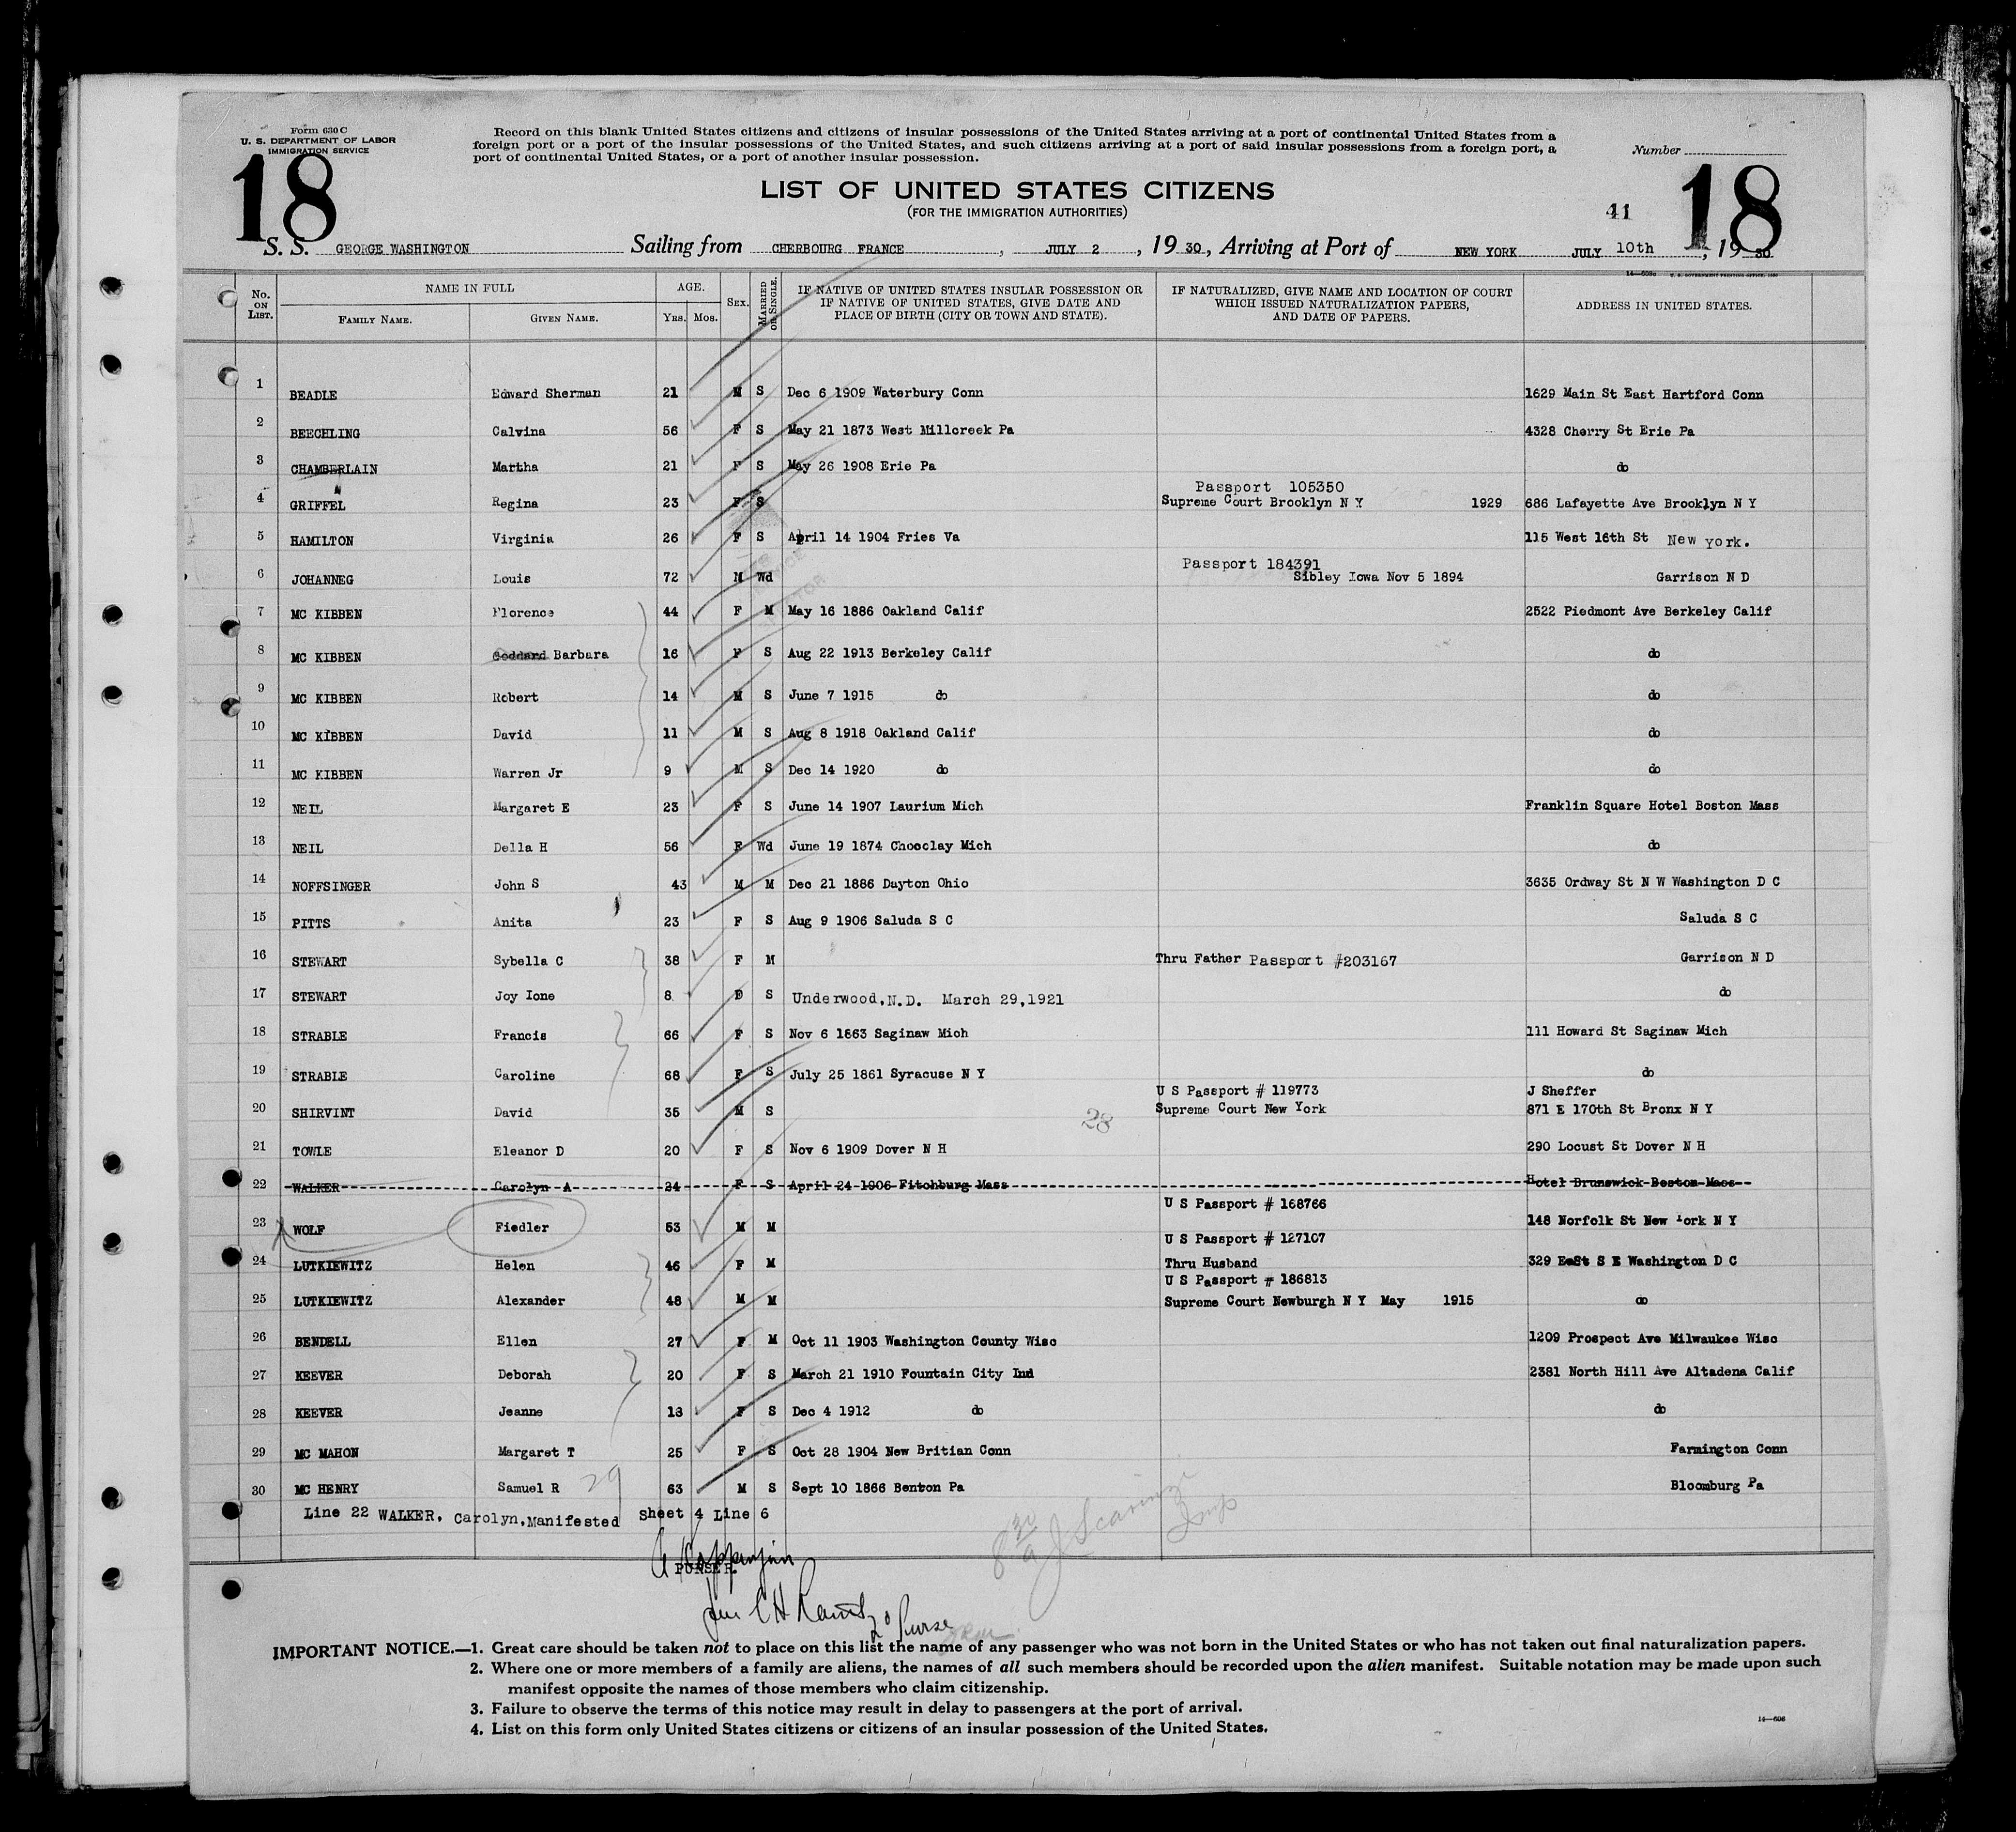 Form 630 C
U. S. DEPARTMENT OF LABOR
IMMIGRATION SERVICE
Record on this blank United States citizens and citizens of insular possessions of the United States arriving at a port of continental United States from a
foreign port or a port of the insular possessions of the United States, and such citizens arriving at a port of said insular possessions from a foreign port, a
port of continental United States, or a port of another insular possession.
Number
18
LIST OF UNITED STATES CITIZENS
(FOR THE IMMIGRATION AUTHORITIES)
41
18
S. S. GEORGE WASHINGTON Sailing from CHERBOURG FRANCE, JULY 2, 19 30, Arriving at Port of NEW YORK JULY 10th, 19 30
No. ON LIST. NAME IN FULL FAMILY NAME. GIVEN NAME. AGE. YRS. MOS. SEX. MARRIED OR SINGLE. IF NATIVE OF UNITED STATES INSULAR POSSESSION OR IF NATIVE OF UNITED STATES, GIVE DATE AND PLACE OF BIRTH (CITY OR TOWN AND STATE). IF NATURALIZED, GIVE NAME AND LOCATION OF COURT WHICH ISSUED NATURALIZATION PAPERS, AND DATE OF PAPERS. ADDRESS IN UNITED STATES.
1 BEADLE Edward Sherman 21 M S Dec 6 1909 Waterbury Conn 1629 Main St East Hartford Conn
2 BEECHLING Calvina 56 F S May 21 1873 West Millcreek Pa 4328 Cherry St Erie Pa
3 CHAMBERLAIN Martha 21 F S May 26 1908 Erie Pa do
Passport 105350
4 GRIFFEL Regina 23 F S Supreme Court Brooklyn N Y 1929 686 Lafayette Ave Brooklyn N Y
5 HAMILTON Virginia 26 F S April 14 1904 Fries Va 115 West 16th St New York.
Passport 184391
6 JOHANNEG Louis 72 M Wd Sibley Iowa Nov 5 1894 Garrison N D
7 MC KIBBEN Florence 44 F M May 16 1886 Oakland Calif 2522 Piedmont Ave Berkeley Calif
8 MC KIBBEN Goddard Barbara 16 F S Aug 22 1913 Berkeley Calif do
9 MC KIBBEN Robert 14 M S June 7 1915 do do
10 MC KIBBEN David 11 M S Aug 8 1918 Oakland Calif do
11 MC KIBBEN Warren Jr 9 M S Dec 14 1920 do do
12 NEIL Margaret E 23 F S June 14 1907 Laurium Mich Franklin Square Hotel Boston Mass
13 NEIL Della H 56 F Wd June 19 1874 Chocclay Mich do
14 NOFFSINGER John S 43 M M Dec 21 1886 Dayton Ohio 3635 Ordway St N W Washington D C
15 PITTS Anita 23 F S Aug 9 1906 Saluda S C Saluda S C
16 STEWART Sybella C 38 F M Thru Father Passport #203167 Garrison N D
17 STEWART Joy Ione 8 S Underwood, N.D. March 29, 1921 do
18 STRABLE Francis 66 F S Nov 6 1863 Saginaw Mich 111 Howard St Saginaw Mich
19 STRABLE Caroline 68 F S July 25 1861 Syracuse N Y do
U S Passport # 119773 J Sheffer
20 SHIRVINT David 35 M S 28 Supreme Court New York 871 E 170th St Bronx N Y
21 TOWLE Eleanor D 20 F S Nov 6 1909 Dover N H 290 Locust St Dover N H
22 WALKER Carolyn A 24 F S April 24 1906 Fitchburg Mass Hotel Brunswick Boston Mass
U S Passport # 168766
23 WOLF Fiedler 53 M M 148 Norfolk St New York N Y
U S Passport # 127107
24 LUTKIEWITZ Helen 46 F M Thru Husband 329 East S E Washington D C
U S Passport # 186813
25 LUTKIEWITZ Alexander 48 M M Supreme Court Newburgh N Y May 1915 do
26 BENDELL Ellen 27 F M Oct 11 1903 Washington County Wisc 1209 Prospect Ave Milwaukee Wisc
27 KEEVER Deborah 20 F S March 21 1910 Fountain City Ind 2381 North Hill Ave Altadena Calif
28 KEEVER Jeanne 18 F S Dec 4 1912 do do
29 MC MAHON Margaret T 25 F S Oct 28 1904 New Britian Conn Farmington Conn
30 MC HENRY Samuel R 29 63 M S Sept 10 1866 Benton Pa Bloomburg Pa
Line 22 WALKER. Carolyn, Manifested Sheet 4 Line 6
PURSER.
IMPORTANT NOTICE.—1. Great care should be taken not to place on this list the name of any passenger who was not born in the United States or who has not taken out final naturalization papers.
2. Where one or more members of a family are aliens, the names of all such members should be recorded upon the alien manifest. Suitable notation may be made upon such
manifest opposite the names of those members who claim citizenship.
3. Failure to observe the terms of this notice may result in delay to passengers at the port of arrival.
4. List on this form only United States citizens or citizens of an insular possession of the United States.